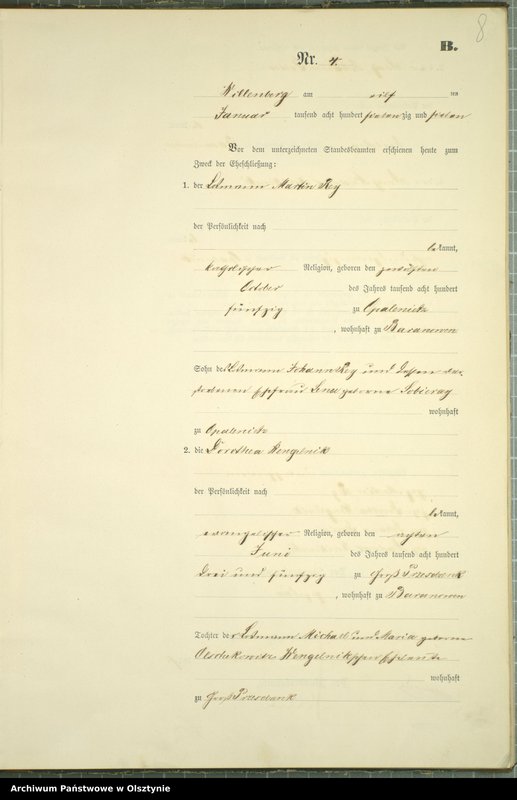 8
B.
Nr. 4.
Willenberg am elf ten
Januar tausend acht hundert siebenzig und sieben
Vor dem unterzeichneten Standesbeamten erschienen heute zum
Zweck der Eheschließung:
1. der Losmann Martin Rey
der Persönlichkeit nach
bekannt,
katholischer Religion, geboren den zwölften
October des Jahres tausend acht hundert
fünfzig zu Opalenietz
, wohnhaft zu Baranowen
Sohn des Losmann Johann Rey und dessen ver-
storbenen Ehefrau Lena geborne Sobieray
wohnhaft
zu Opalenietz
2. die Dorothea Wengelnik
der Persönlichkeit nach
bekannt,
evangelischer Religion, geboren den achten
Juni des Jahres tausend acht hundert
drei und fünfzig zu Groß Przesdzienk
, wohnhaft zu Baranowen
Tochter der Losmann Michael und Maria geborne
Wengelnikschen Eheleute
wohnhaft
zu Groß Przesdzienk
Archiwum Państwowe w Olsztynie